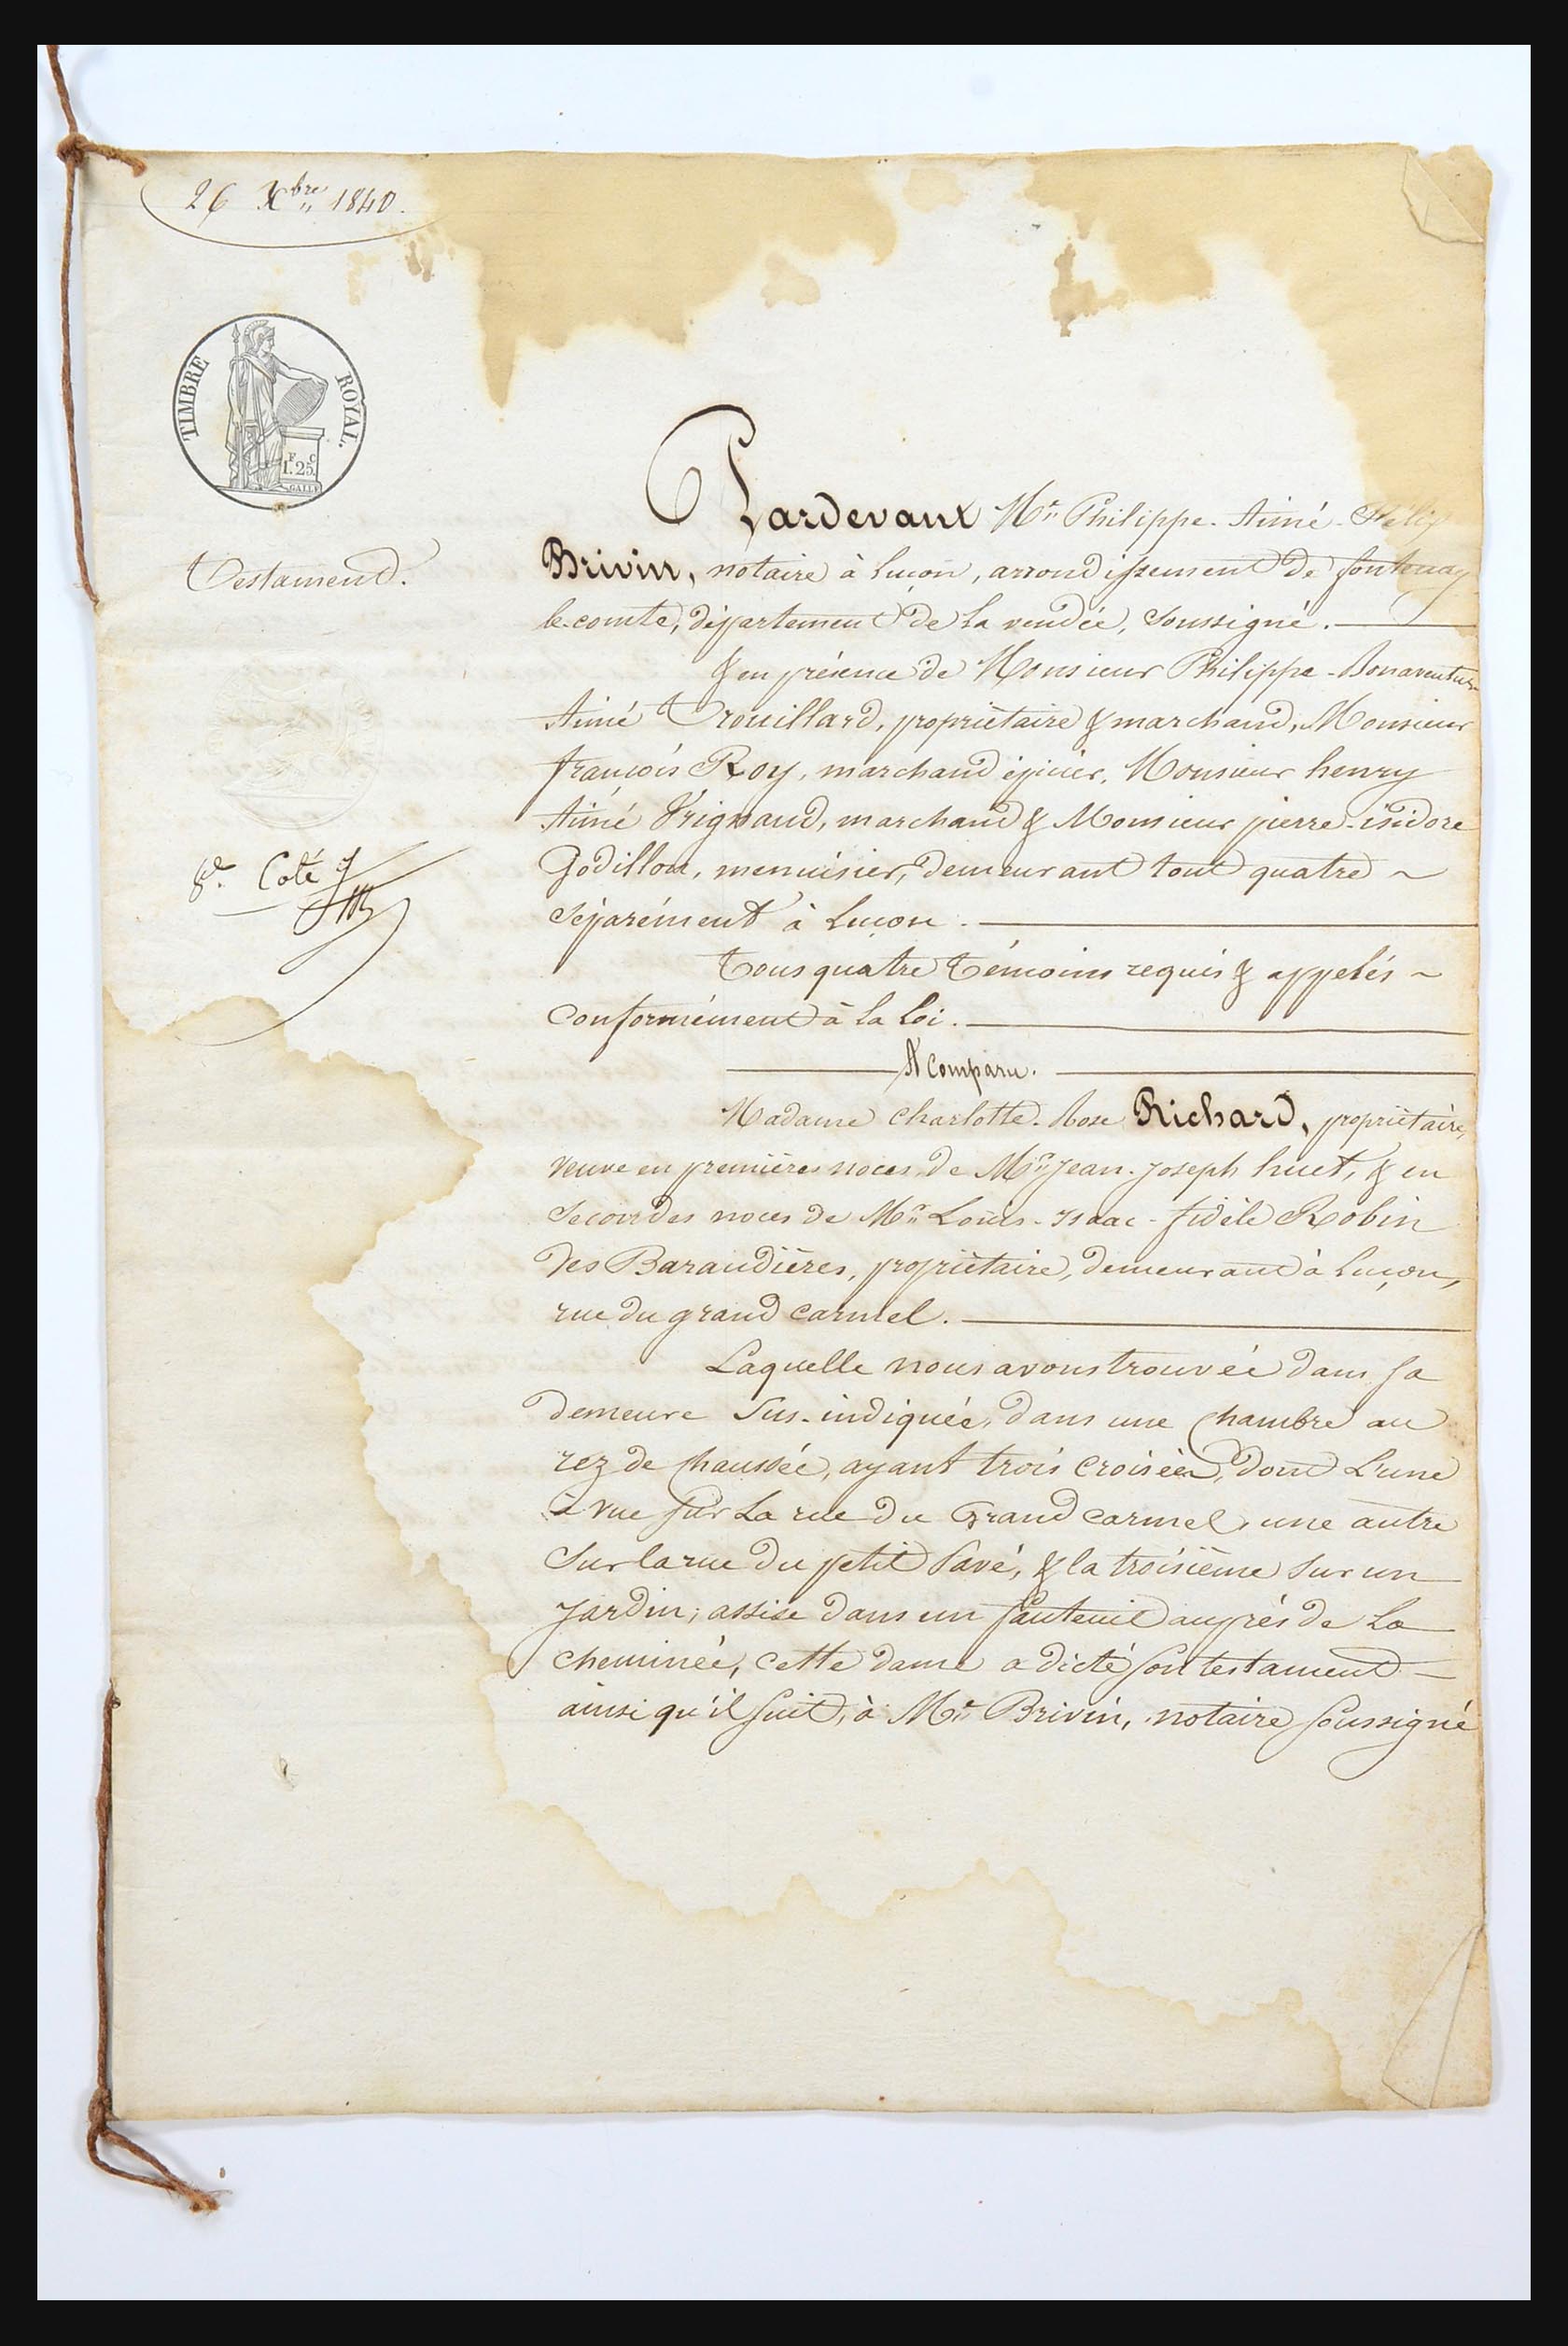 26 Xbre 1840.
TIMBRE ROYAL.
1.F 25.c
GALLE
Testament.
Pardevant Me Philippe-Aimé-Félix
Brivin, notaire à Luçon, arrondissement de fontenay
le-comte, département de la vendée, soussigné.
& en présence de Monsieur Philippe-Bonaventure
Aimé Trouillard, propriètaire & marchand, Monsieur
françois Roy, marchand épicier, Monsieur henry
Aimé Vrignaud, marchand & Monsieur pierre-isidore
Godillon, menuisier, demeurant tout quatre ~
séparément à Luçon.
Tous quatre témoins requis & appelés ~
conformément à la Loi.
A Comparu.
Madame charlotte-Rose Richard, propriètaire,
veuve en premières noces de Mr Jean-Joseph huet, & en
secondes noces de Mr Louis-Isaac-fidèle Robin
des Baraudières, propriètaire, demeurant à Luçon,
rue du grand carmel.
Laquelle nous avons trouvée dans sa
demeure sus-indiquée, dans une chambre au
rez de chaussée, ayant trois croisées, dont L'une
à vue sur La rue du Grand carmel, une autre
sur la rue du petit Pavé, & la troisième sur un
jardin; assise dans un fauteuil auprès de La
cheminée, cette dame a dicté son testament
ainsi qu'il suit, à Me Brivin, notaire soussigné
Coté